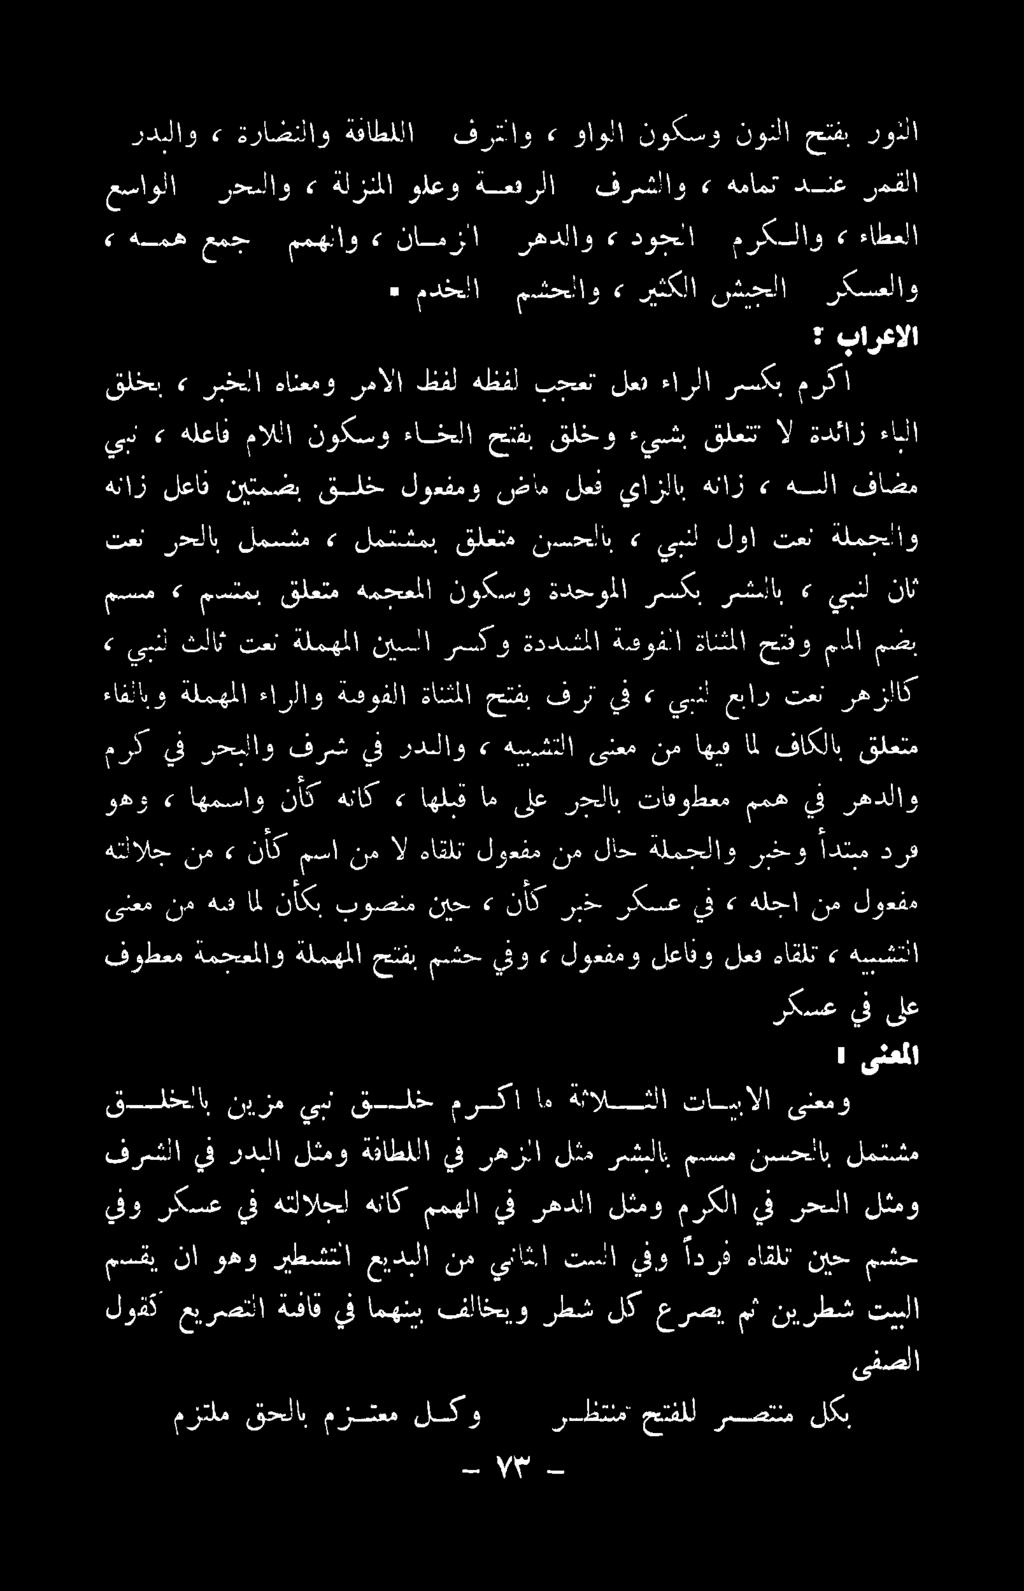 النور بفتح النون وسكون الواو ، والترف اللطافة والنضارة ، والبدر
القمر عند تمامه ، والشرف الرفعة وعلو المنزلة ، والبحر الواسع
العطاء ، والكرم الجود ، والدهر الزمان ، والهمم جمع همه ،
والعسكر الجيش الكثير ، والحشم الخدم .
الاعراب :
اكرم بكسر الراء فعل تعجب لفظه لفظ الامر ومعناه الخبر ، بخلق
الباء زائدة لا تتعلق بشيء وخلق بفتح الخاء وسكون اللام فاعله ، نبي
مضاف اليه ، زانه بالزاي فعل ماض ومفعول خلق بضمتين فاعل زانه
والجملة نعت اول لنبي ، بالحسن متعلق بمشتمل ، مشتمل بالجر نعت
ثان لنبي ، بالبشر بكسر الموحدة وسكون المعجمه متعلق بمتسم ، متسم
بضم الميم وفتح المثناة الفوقية المشددة وكسر السين المهملة نعت ثالث لنبي ،
كالزهر نعت رابع لنبي ، في ترف بفتح المثناة الفوقية والراء المهملة وبالفاء
متعلق بالكاف لما فيها من معنى التشبيه ، والبدر في شرف والبحر في كرم
والدهر في همم معطوفات بالجر على ما قبلها ، كانه كأن واسمها ، وهو
فرد مبتدأ وخبر والجملة حال من مفعول تلقاه لا من اسم كأن ، من جلالته
مفعول من اجله ، في عسكر خبر كأن ، حين منصوب بكأن لما فيه من معنى
التشبيه ، تلقاه فعل وفاعل ومفعول ، وفي حشم بفتح المهملة والمعجمة معطوف
على في عسكر
المعنى :
ومعنى الابيات الثلاثة ما اكرم خلق نبي مزين بالخلق
مشتمل بالحسن متسم بالبشر مثل الزهر في اللطافة ومثل البدر في الشرف
ومثل البحر في الكرم ومثل الدهر في الهمم كانه لجلالته في عسكر وفي
حشم حين تلقاه فرداً وفي البيت الثاني من البديع التشطير وهو ان يقسم
البيت شطرين ثم يصرع كل شطر ويخالف بينهما في قافية التصريع كقول
الصفى
بكل منتصر للفتح منتظر وكل معتزم بالحق ملتزم
– ٧٣ –